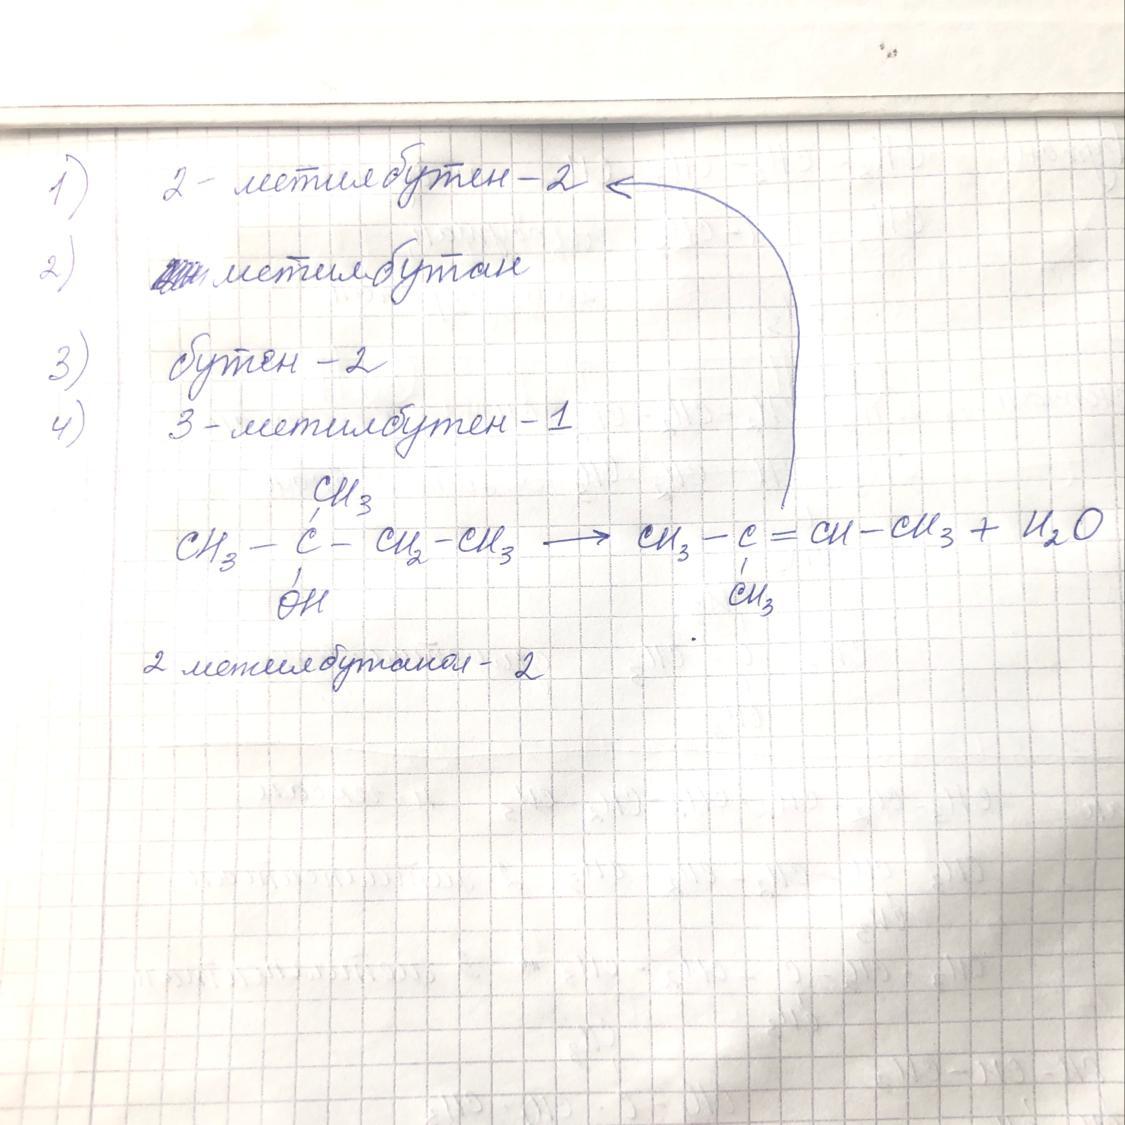 1) 2 - метилбутен - 2
2) метилбутан
3) бутен - 2
4) 3 - метилбутен - 1
CH3
CH3 - C - CH2 - CH3 → CH3 - C = CH - CH3 + H2O
OH CH3
2 метилбутанол - 2